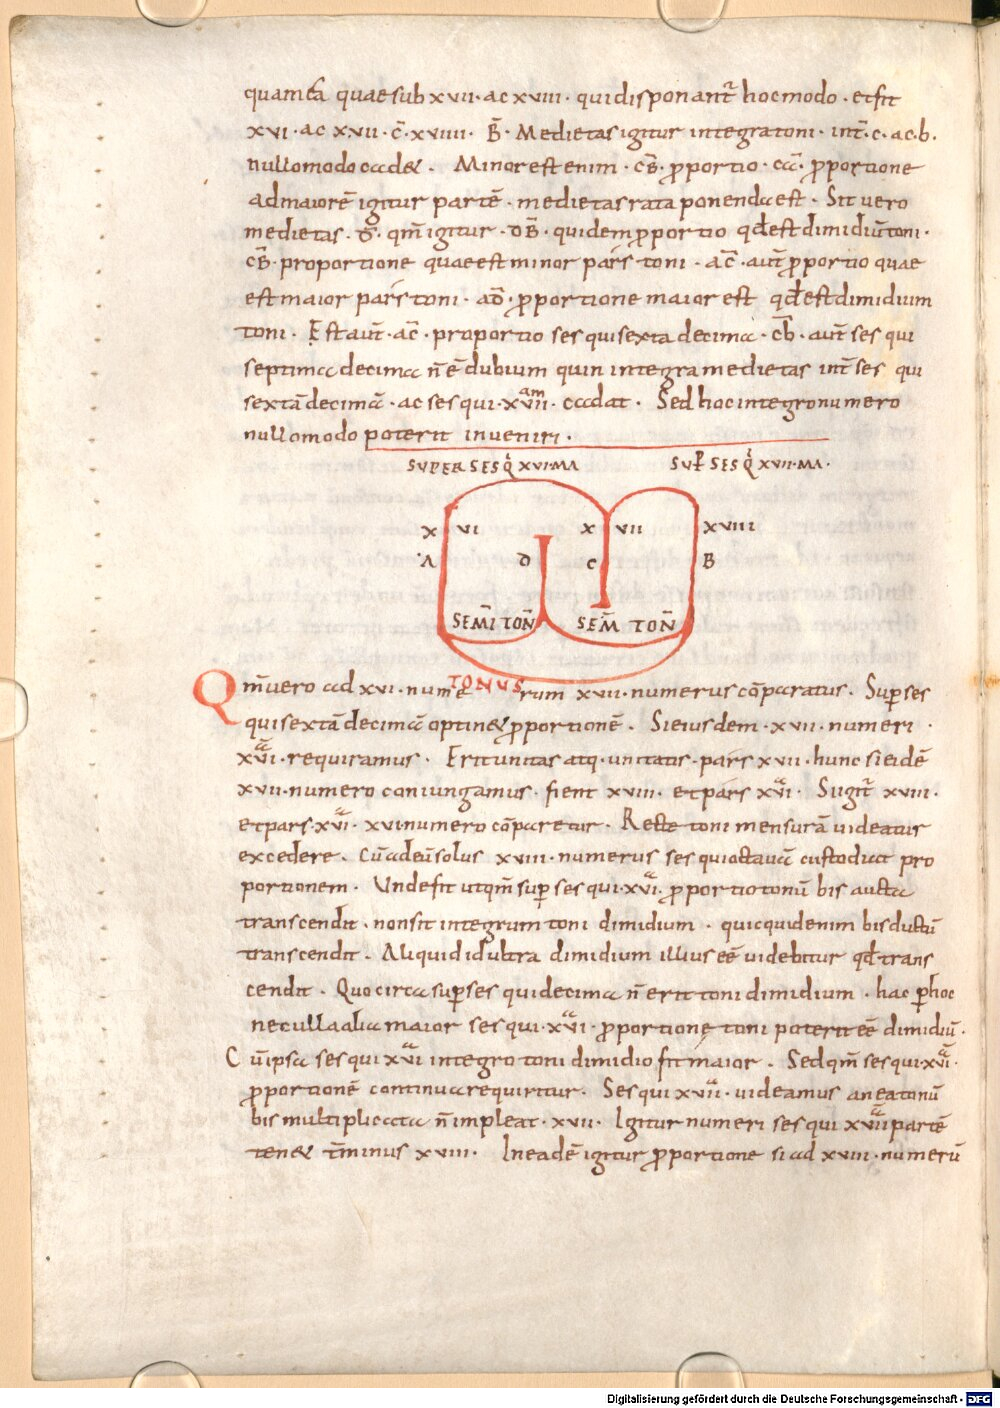 quam ea quae sub xvii · ac xviii · qui disponant̄ hoc modo · et fit
xvi · ac xvii · c̄ · xviiii · B̄ · Medietas igitur integra toni · int̄ · c · ac · b ·
nullo modo cadet · Minor est enim · cB̄ · p̄portio · ca̅ · p̄portione
ad maiorē igitur partē · medietas rata ponenda est · Sit vero
medietas · d̄ · qm̄ igitur · dB̄ · quidem p̄portio qd̄ est dimidiū toni ·
cB̄ · proportione quae est minor pars toni · ac̄ · aut̄ p̄portio quae
est maior pars toni · ad̄ · p̄portione maior est qd̄ est dimidium
toni · Est aut̄ · ac̄ · proportio ses qui sexta decima · cb̄ · aut̄ ses qui
septima decima n̄ ē dubium quin integra medietas int̄ ses qui
sextā decimā · ac ses qui · xvii am · cadat · Sed hoc integro numero
nullo modo poterit inveniri ·
SUPER SESQ̇ XVI·MA SUP̄ SESQ̇ XVII·MA·
X VI X VII XVIII
A D C B
SEMĪ TON̄ SEM̄ TON̄
TONUS
Qm̄ vero ad xvi · numerum xvii · numerus cōparatus · Sup̄ ses
qui sextā decimā optinet p̄portionē · Si eiusdem · xvii · numeri ·
xvi · requiramus · Erit unitas atq · unitatis · pars xvii · hunc si eidē
xvii · numero coniungamus · fient xviii · et pars xvi · Si igit̄ xviii ·
et pars · xvi · xvi numero cōparetur · Recte toni mensurā videatur
excedere · Cū ad eū solus xviii · numerus ses qui octavā custodiat pro
portionem · Unde fit ut qm̄ sup̄ ses qui · xvi · p̄portio tonū bis aucta
transcendit · non sit integrum toni dimidium · quicquid enim bis ductū
transcendit · Aliquid id ultra dimidium illius eē videbitur qd̄ trans
cendit · Quocirca sup̄ ses qui decima n̄ erit toni dimidium · hac p̄ hoc
nec ulla alia maior ses qui · xvi · p̄portione toni poterit eē dimidiū ·
Cū ipsa ses qui xvi integro toni dimidio sit maior · Sed qm̄ ses qui · xvi ·
p̄portionē continua requiritur · Ses qui xvii · videamus an ea tonū
bis multiplicata n̄ impleat · xvii · Igitur numeri ses qui xvii partē
tenet t̄minus xviii · In eadē igitur p̄portione si ad xviii · numerū
Digitalisierung gefördert durch die Deutsche Forschungsgemeinschaft - DFG